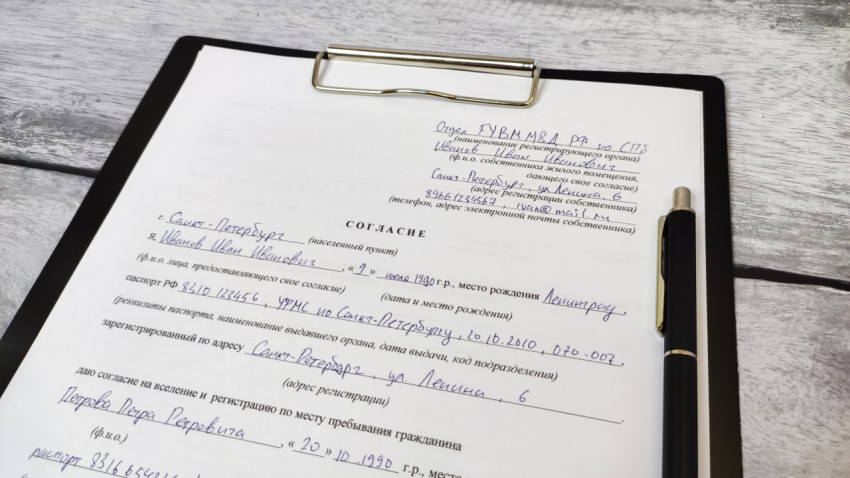 Отдел ГУВМ МВД РФ по СПб
(наименование регистрирующего органа)
Иванов Иван Иванович
(ф.и.о. собственника жилого помещения,
дающего свое согласие)
Санкт-Петербург, ул Ленина 6
(адрес регистрации собственника)
89661234567, ivan@mail.ru
(телефон, адрес электронной почты собственника)
СОГЛАСИЕ
г. Санкт-Петербург
(населенный пункт)
Я, Иванов Иван Иванович, «9» июля 1990 г.р., место рождения Ленинград,
(ф.и.о. лица, предоставляющего свое согласие) (дата и место рождения)
паспорт РФ 8310 123456, УФМС по Санкт-Петербургу, 20.10.2010, 070-007,
(реквизиты паспорта, наименование выдавшего органа, дата выдачи, код подразделения)
зарегистрированный по адресу Санкт-Петербург, ул. Ленина, 6
(адрес регистрации)
даю согласие на вселение и регистрацию по месту пребывания гражданина
Петрова Петра Петровича, «20» 10.1990 г.р., место
(ф.и.о.)
паспорт 8316